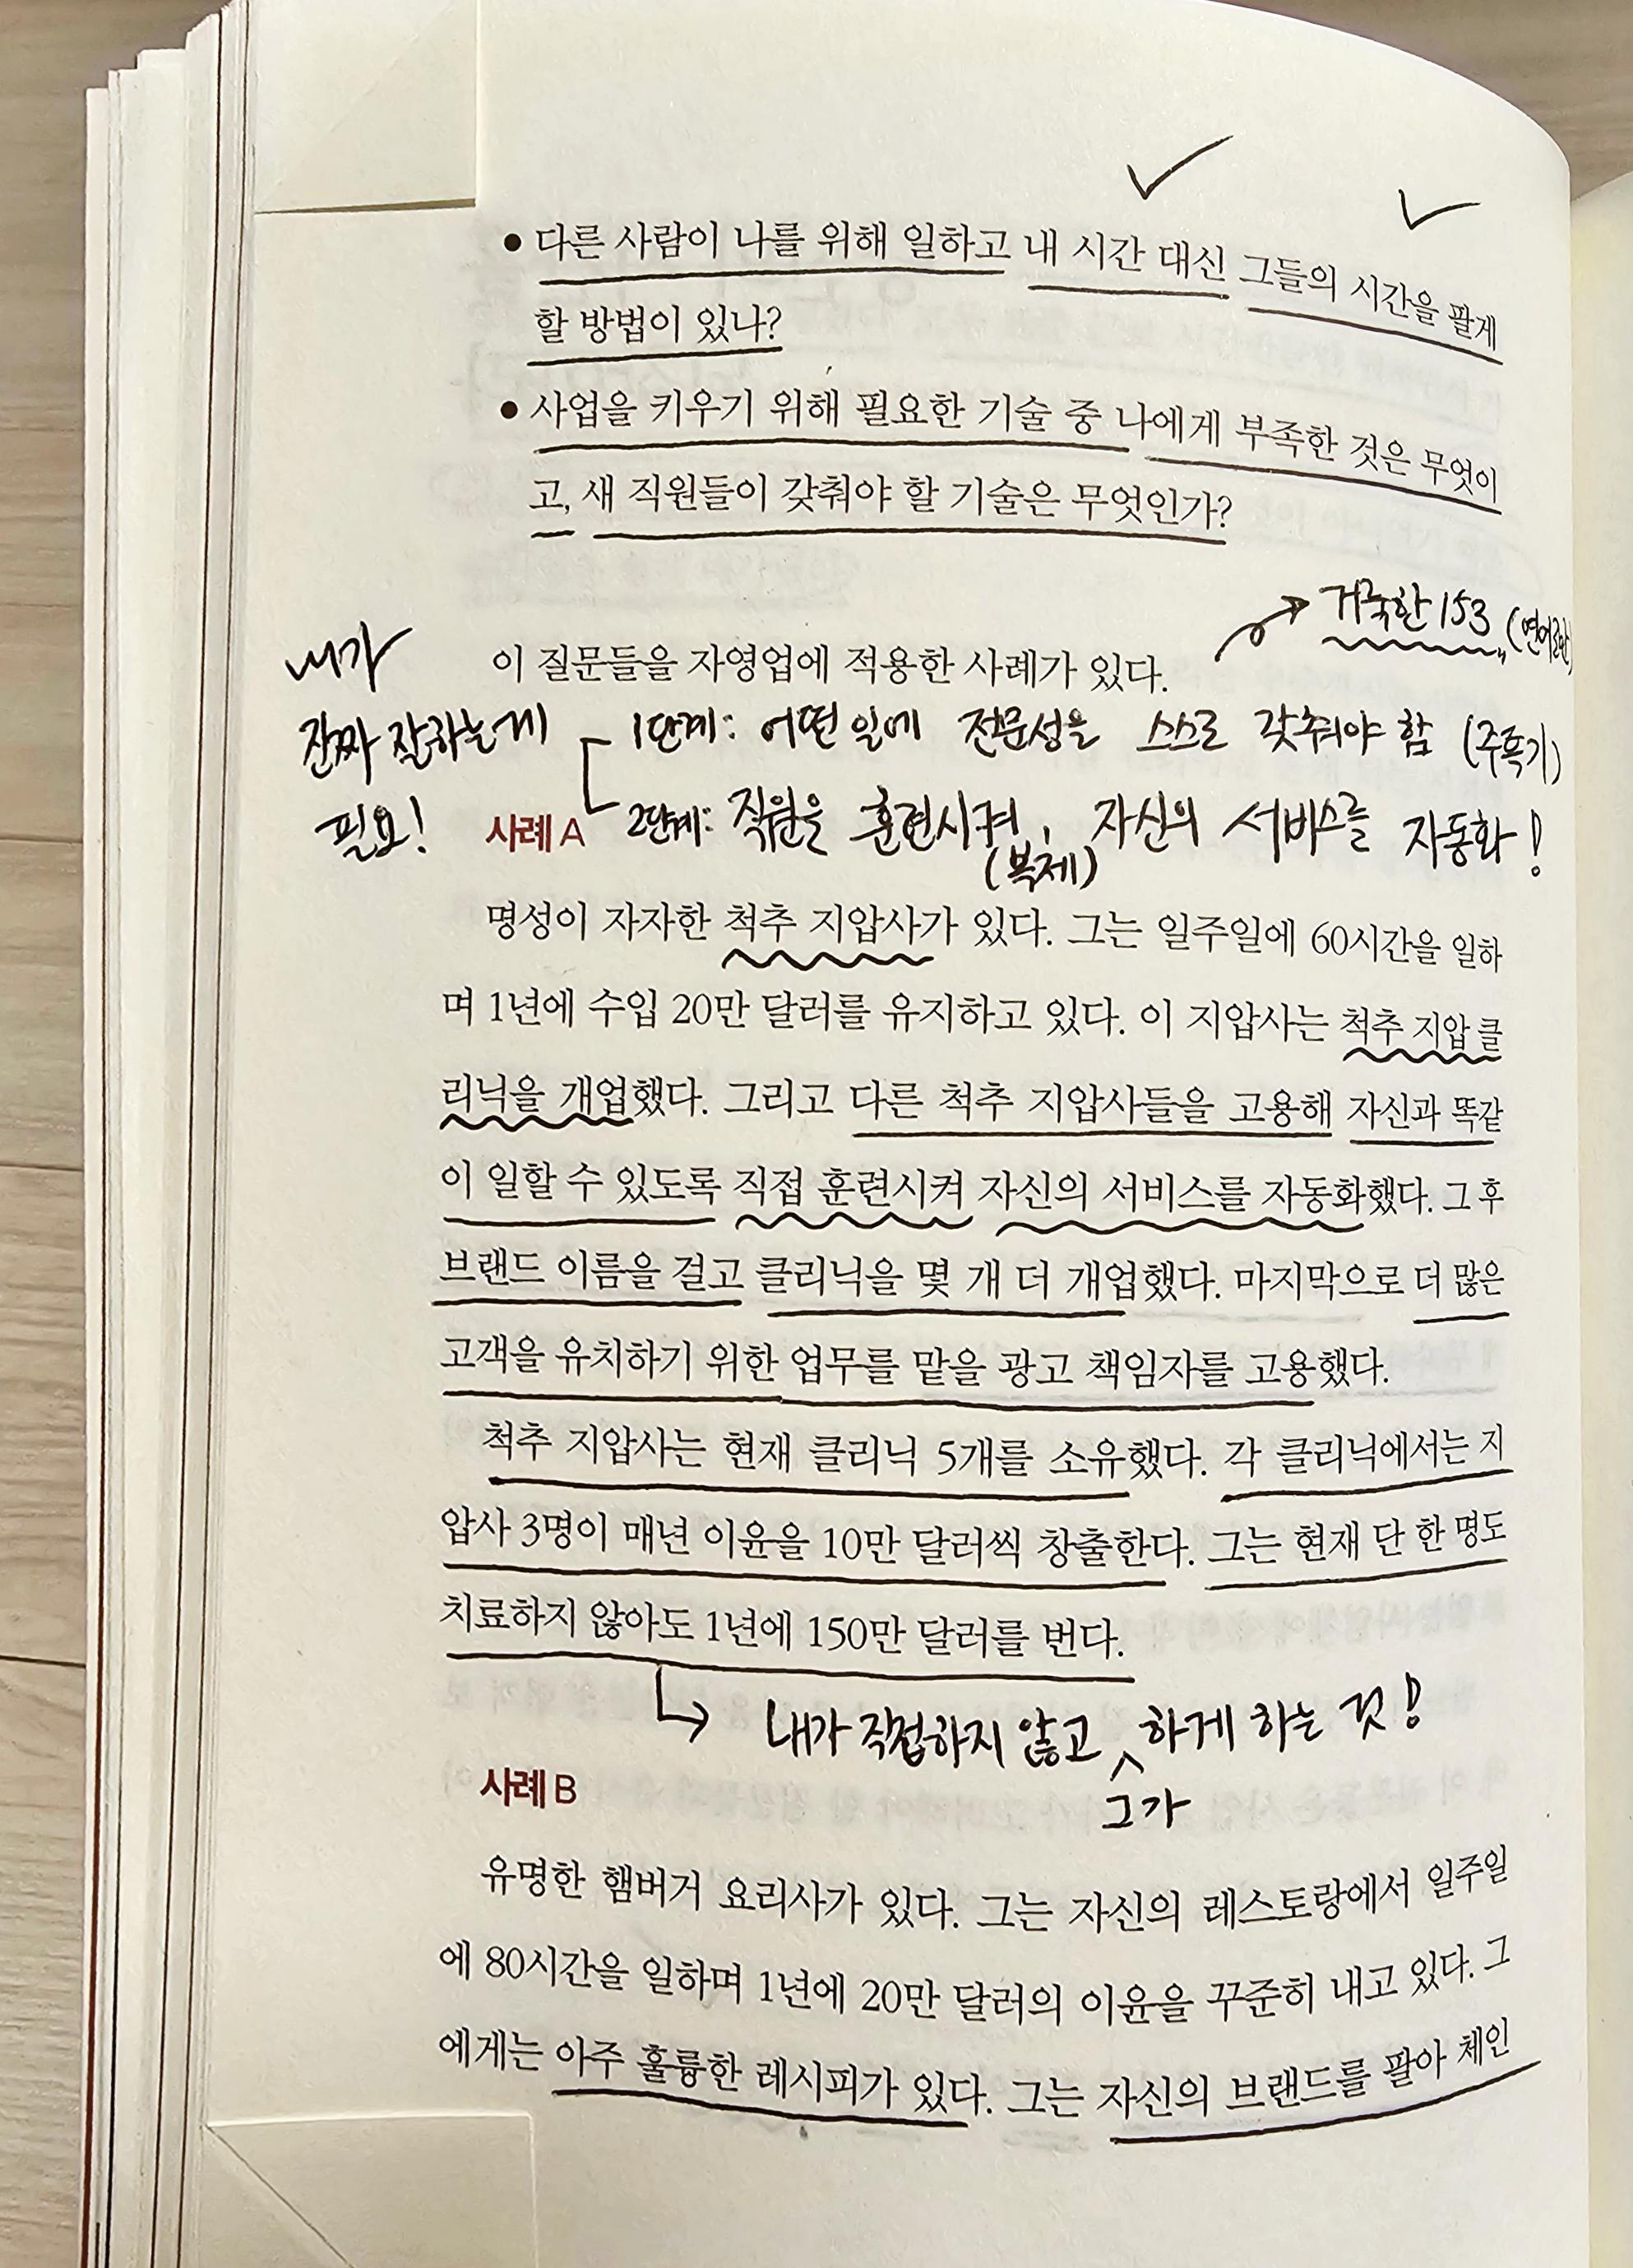 • 다른 사람이 나를 위해 일하고 내 시간 대신 그들의 시간을 팔게
할 방법이 있나?
• 사업을 키우기 위해 필요한 기술 중 나에게 부족한 것은 무엇이
고, 새 직원들이 갖춰야 할 기술은 무엇인가?
거국한 153 (연어로만)
이 질문들을 자영업에 적용한 사례가 있다.
내가
진짜 잘하는게
필요!
1단계: 어떤 일에 전문성을 스스로 갖춰야 함 (주특기)
2단계: 직원을 훈련시켜, 자신의 서비스를 자동화!
(복제)
사례 A
명성이 자자한 척추 지압사가 있다. 그는 일주일에 60시간을 일하
며 1년에 수입 20만 달러를 유지하고 있다. 이 지압사는 척추 지압 클
리닉을 개업했다. 그리고 다른 척추 지압사들을 고용해 자신과 똑같
이 일할 수 있도록 직접 훈련시켜 자신의 서비스를 자동화했다. 그 후
브랜드 이름을 걸고 클리닉을 몇 개 더 개업했다. 마지막으로 더 많은
고객을 유치하기 위한 업무를 맡을 광고 책임자를 고용했다.
척추 지압사는 현재 클리닉 5개를 소유했다. 각 클리닉에서는 지
압사 3명이 매년 이윤을 10만 달러씩 창출한다. 그는 현재 단 한 명도
치료하지 않아도 1년에 150만 달러를 번다.
내가 직접하지 않고 하게 하는 것!
그가
사례 B
유명한 햄버거 요리사가 있다. 그는 자신의 레스토랑에서 일주일
에 80시간을 일하며 1년에 20만 달러의 이윤을 꾸준히 내고 있다. 그
에게는 아주 훌륭한 레시피가 있다. 그는 자신의 브랜드를 팔아 체인